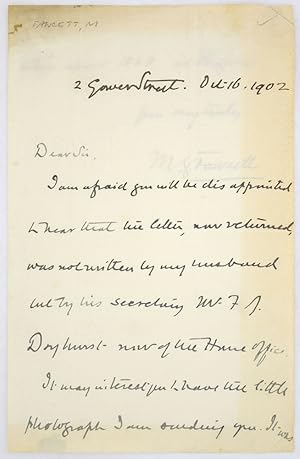 FAWCETT, M
2 Gower Street. Oct 16. 1902
Dear Sir,
I am afraid you will be disappointed
to hear that the letter, now returned,
was not written by my husband
but by his secretary Mr. F. J.
Dryhurst - now of the Home Office.
It may interest you to have the little
photograph I am sending you. It was